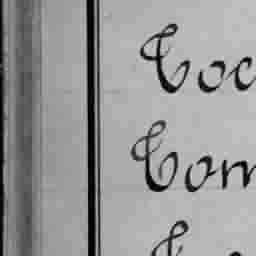 Coc
Com